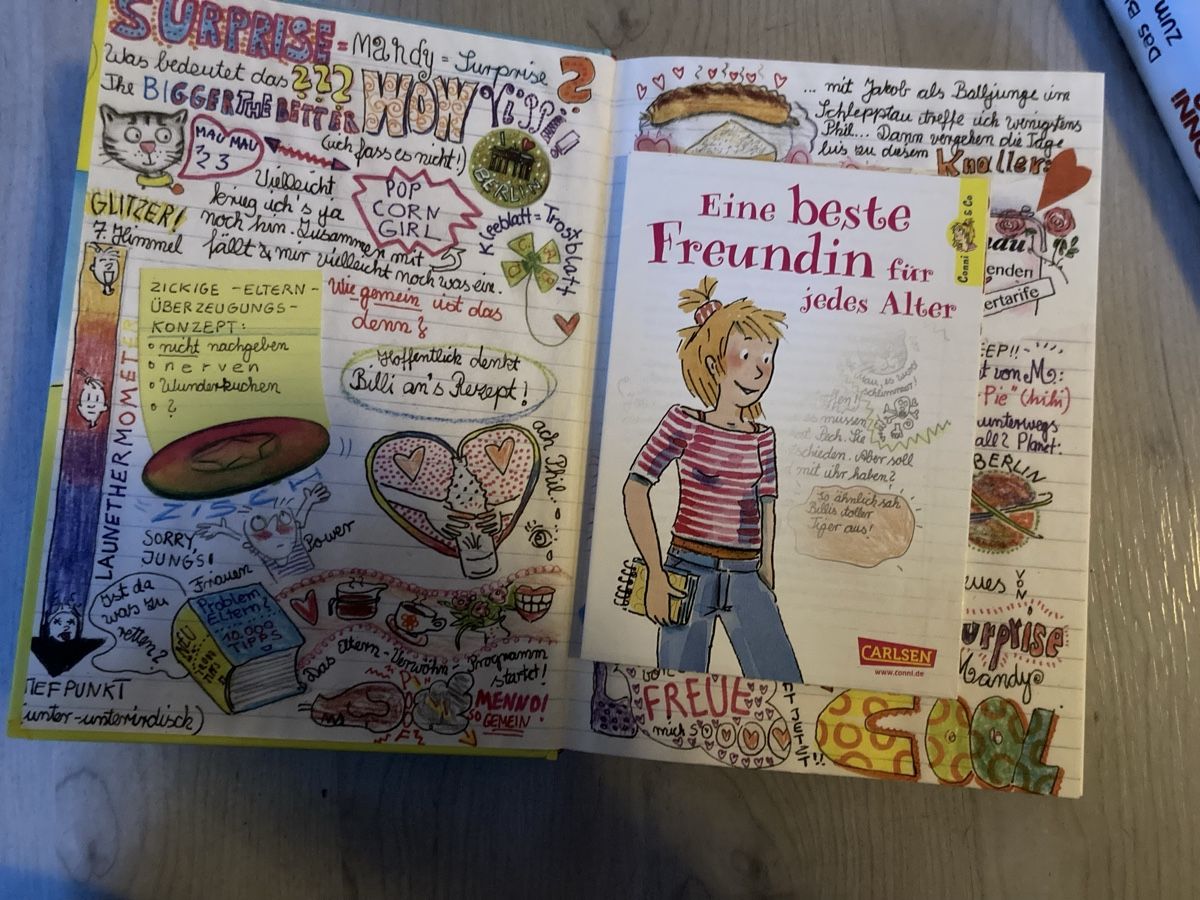 SURPRISE = Mandy = Surprise
Was bedeutet das ???
The BIGGER THE BETTER WOW
(ich fass es nicht!)
MAU MAU
1 2 3
BERLIN
GLITZER!
7. Himmel
Vielleicht
krieg ich's ja
noch hin. Zusammen mit
fällt & mir vielleicht noch was ein.
POP
CORN
GIRL
Kleeblatt = Trostblatt
ZICKIGE - ELTERN -
ÜBERZEUGUNGS-
KONZEPT:
nicht nachgeben
nerven
Wunderkuchen
?
Wie gemein ist das
denn?
Hoffentlich denkt
Billi an's Rezept!
LAUNETHERMOMETER
ach Phil...
ZISCH
SORRY,
JUNGS!
Frauen
Power
Ist da
was zu
retten?
Problem
Eltern!
10.000
TIPPS
NEU
Das Eltern-Verwöhn
Programm
startet!
MENNO!
SO
GEMEIN!
TIEFPUNKT
(unter-unterirdisch)
... mit Jakob als Balljunge im
Schlepptau treffe ich wenigstens
Phil... Dann vergehen die Tage
bis zu diesem Knaller:
Eine beste
Freundin für
jedes Alter
Conni & Co
So ähnlich sah
Billis toller
Tiger aus!
CARLSEN
www.conni.de
enden
ertarife
EEP!!
t von M:
Pie" (hihi)
unterwegs
all? Planet.
BERLIN
ues
VON
urprise
Mandy
FREUE
mich so
JETZT!!
COOL
Das B
Zum
NNI